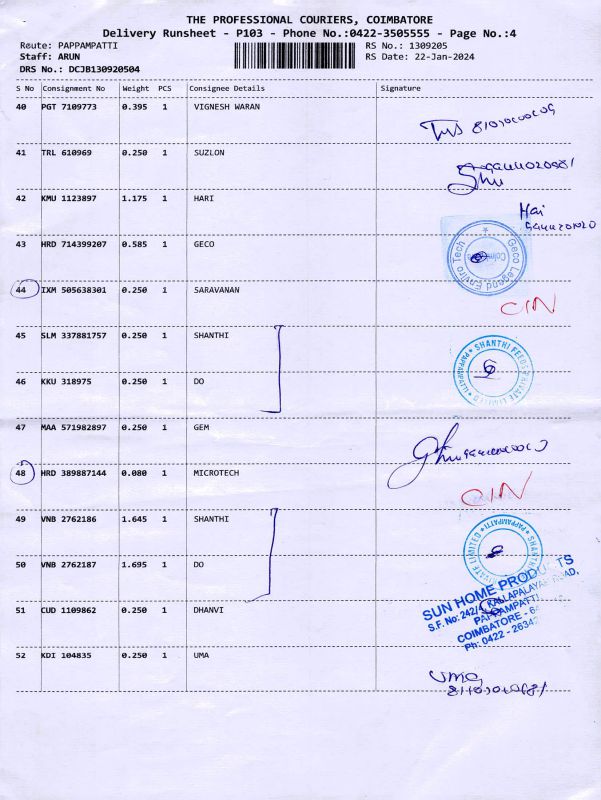 THE PROFESSIONAL COURIERS, COIMBATORE
Delivery Runsheet - P103 - Phone No.:0422-3505555 - Page No.:4
Route: PAPPAMPATTI RS No.: 1309205
Staff: ARUN RS Date: 22-Jan-2024
DRS No.: DCJB130920504
S No Consignment No Weight PCS Consignee Details Signature
40 PGT 7109773 0.395 1 VIGNESH WARAN
41 TRL 610969 0.250 1 SUZLON
42 KMU 1123897 1.175 1 HARI
Hari
43 HRD 714399207 0.585 1 GECO
Geco Legend Enviro Tech
44 IXM 505638301 0.250 1 SARAVANAN
CIN
45 SLM 337881757 0.250 1 SHANTHI
SHANTHI FEEDS PRIVATE LIMITED * PAPPAMPATTI *
46 KKU 318975 0.250 1 DO
47 MAA 571982897 0.250 1 GEM
48 HRD 389887144 0.080 1 MICROTECH
CIN
49 VNB 2762186 1.645 1 SHANTHI
50 VNB 2762187 1.695 1 DO
51 CUD 1109862 0.250 1 DHANVI
SUN HOME PRODUCTS
S.F. No: 242/ KALLAPALAYAM ROAD,
PAPPAMPATTI
COIMBATORE - 6
Ph: 0422 - 2634
52 KDI 104835 0.250 1 UMA
UMA